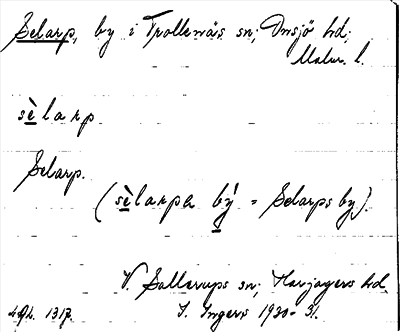 Selarp, by i Trollenäs sn; Onsjö hd;
Malm. l.
sèlarp
Selarp.
(sèlarpa bý = Selarps by).
V. Sallerups sn; Harjagers hd.
S. Ingers 1930-31.